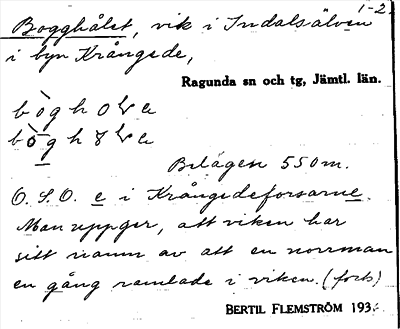 1-2.
Bogghålet, vik i Indalsälven
i byn Krångede,
Ragunda sn och tg, Jämtl. län.
Belägen 550 m.
O.S.O. e i Krångedeforsarne.
Man uppger, att viken har
sitt namn av att en norrman
en gång ramlade i viken. (forts)
BERTIL FLEMSTRÖM 193